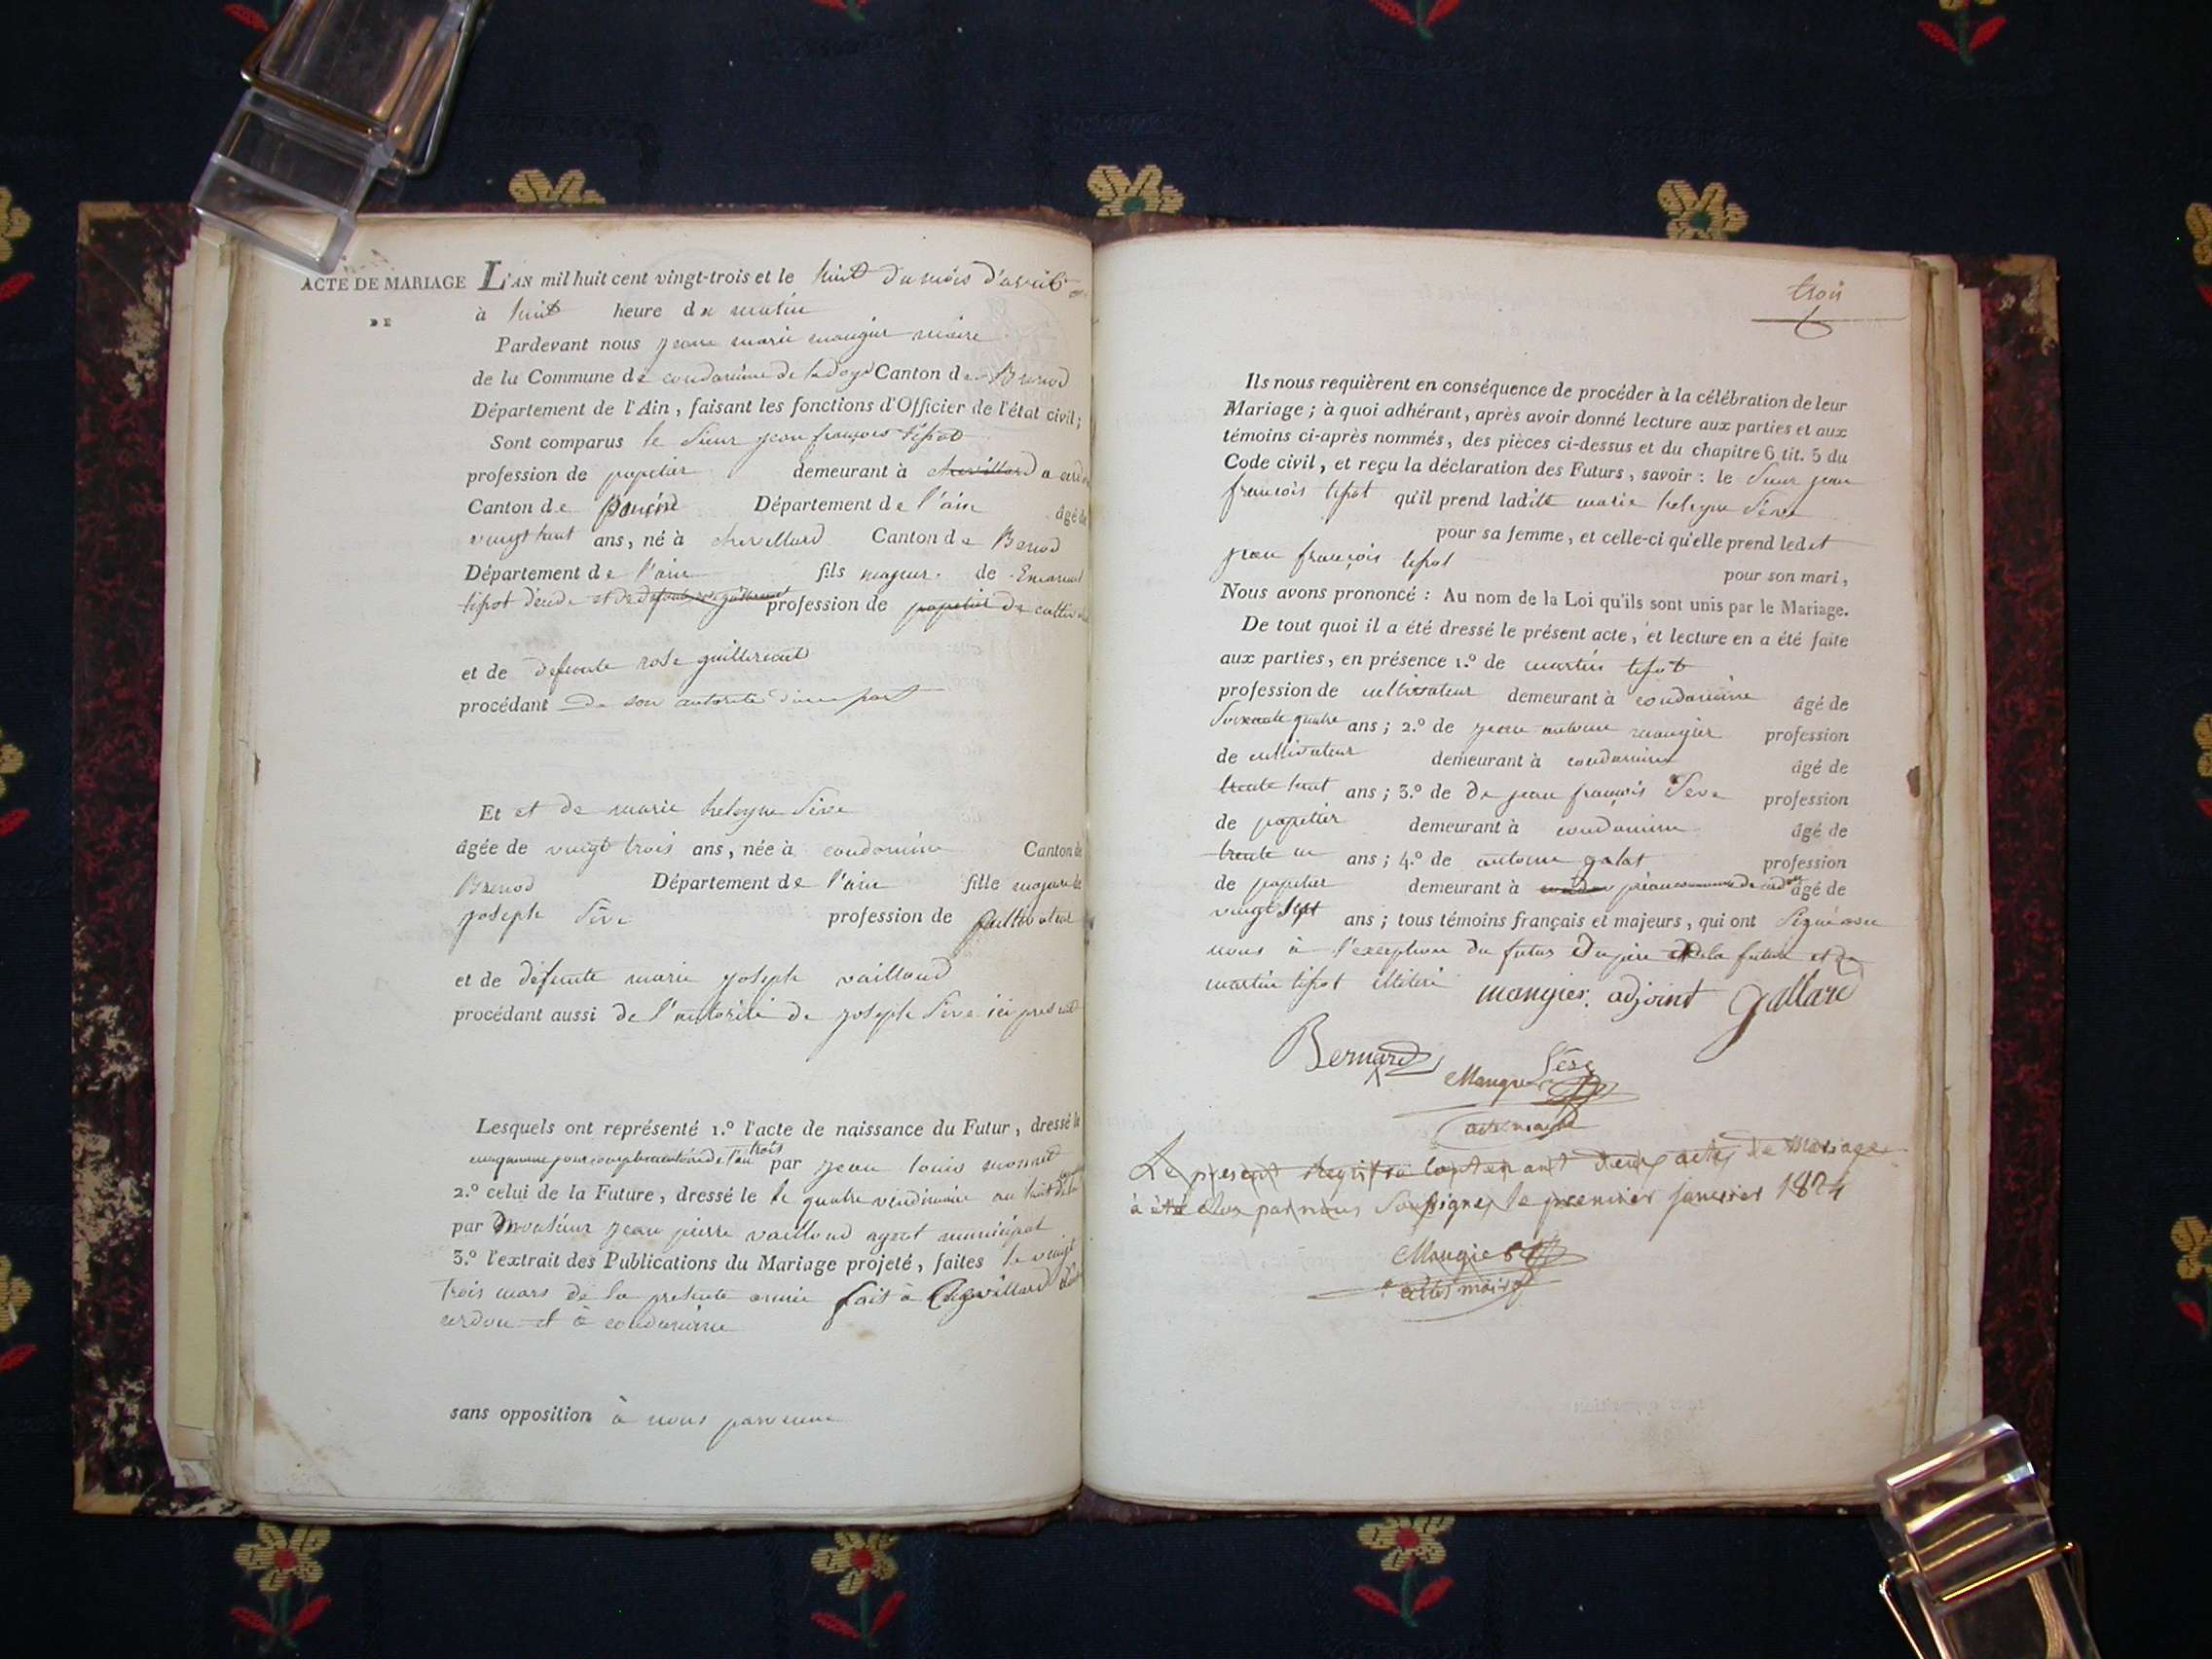 ACTE DE MARIAGE
DE
L'AN mil huit cent vingt-trois et le huit du mois d'avril
à huit heure du matin
Pardevant nous jean marie mangier maire
de la Commune de condamine de la doye Canton de Brenod
Département de l'Ain, faisant les fonctions d'Officier de l'état civil;
Sont comparus le Sieur jean françois tifrot
profession de papetier demeurant à chevillard a cerdon
Canton de poncin Département de l'ain âgé de
vingt huit ans, né à chevillard Canton de Brenod
Département de l'ain fils majeur de
tifrot et de defunte rose guillermet profession de papetier de
et de defunte rose guillermet
procédant de son autorité d'une part
Et et de marie Sève
âgée de vingt trois ans, née à condamine Canton de
Brenod Département de l'ain fille majeure de
joseph Sève profession de cultivateur
et de défunte marie joseph vailloud
procédant aussi de l'autorité de joseph Sève ici present
Lesquels ont représenté 1.º l'acte de naissance du Futur, dressé le
jour complémentaire de l'an trois par jean louis
2.º celui de la Future, dressé le le quatre vendémiaire an huit
par monsieur jean pierre vailloud agent municipal
3.º l'extrait des Publications du Mariage projeté, faites le vingt
trois mars de la presente année fait à Chevillard
cerdon et à condamine
sans opposition à nous parvenue
trois
Ils nous requièrent en conséquence de procéder à la célébration de leur
Mariage; à quoi adhérant, après avoir donné lecture aux parties et aux
témoins ci-après nommés, des pièces ci-dessus et du chapitre 6 tit. 5 du
Code civil, et reçu la déclaration des Futurs, savoir: le Sieur jean
françois tifrot qu'il prend ladite marie Sève
pour sa femme, et celle-ci qu'elle prend ledit
jean françois tifrot pour son mari,
Nous avons prononcé: Au nom de la Loi qu'ils sont unis par le Mariage.
De tout quoi il a été dressé le présent acte, et lecture en a été faite
aux parties, en présence 1.º de martin tifrot
profession de cultivateur demeurant à condamine âgé de
Soixante quatre ans; 2.º de jean antoine mangier profession
de cultivateur demeurant à condamine âgé de
trente huit ans; 3.º de de jean françois Sève profession
de papetier demeurant à condamine âgé de
trente un ans; 4.º de antoine galat profession
de papetier demeurant à commune de cerdon âgé de
vingt sept ans; tous témoins français et majeurs, qui ont Signé avec
nous à l'exception du futur du père de la future et de
martin tifrot illiteré mangier. adjoint Gallard
Bernard
Sève
Mangier
maire
Le present Registre contenant deux actes de Mariage
à été Clos par nous Soussignes le premier janvier 1824
Mangier
maire